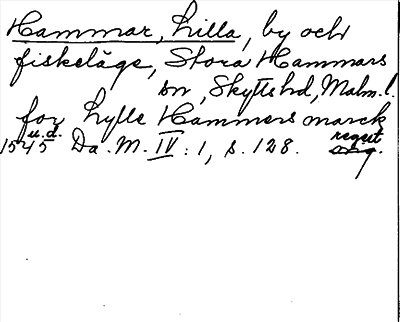 Hammar, Lilla, by och
fiskeläge, Stora Hammars
sn, Skytts hd, Malm. l.
for Lylle Hammers marck
1545 u.d. Da. M. IV: 1, s. 128. regest